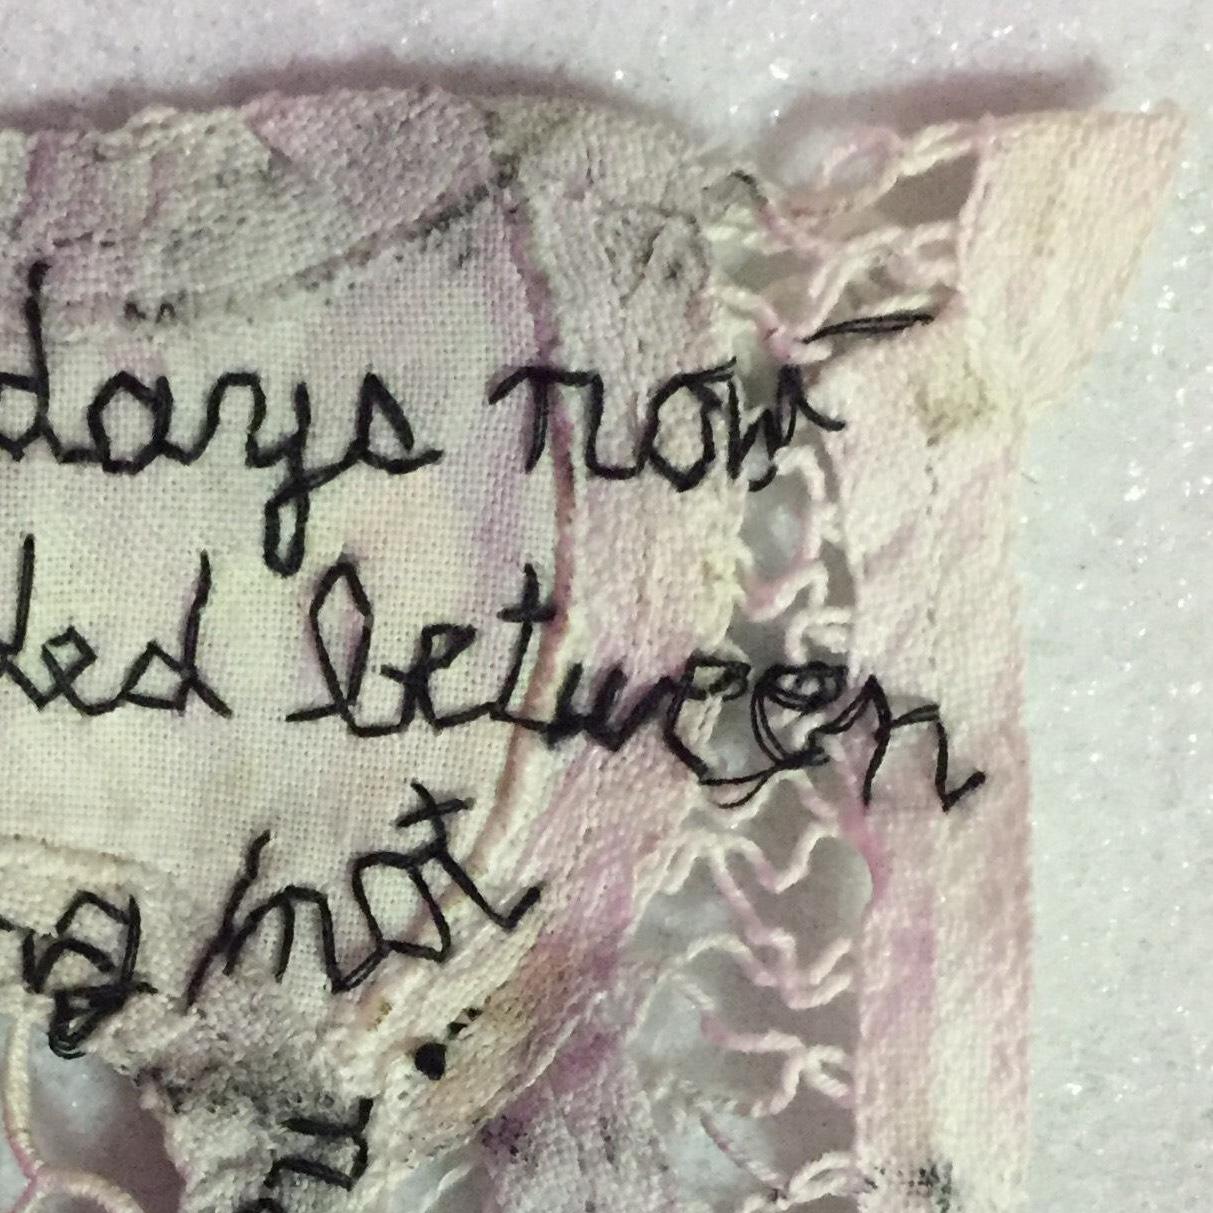 days now
ded between
g not